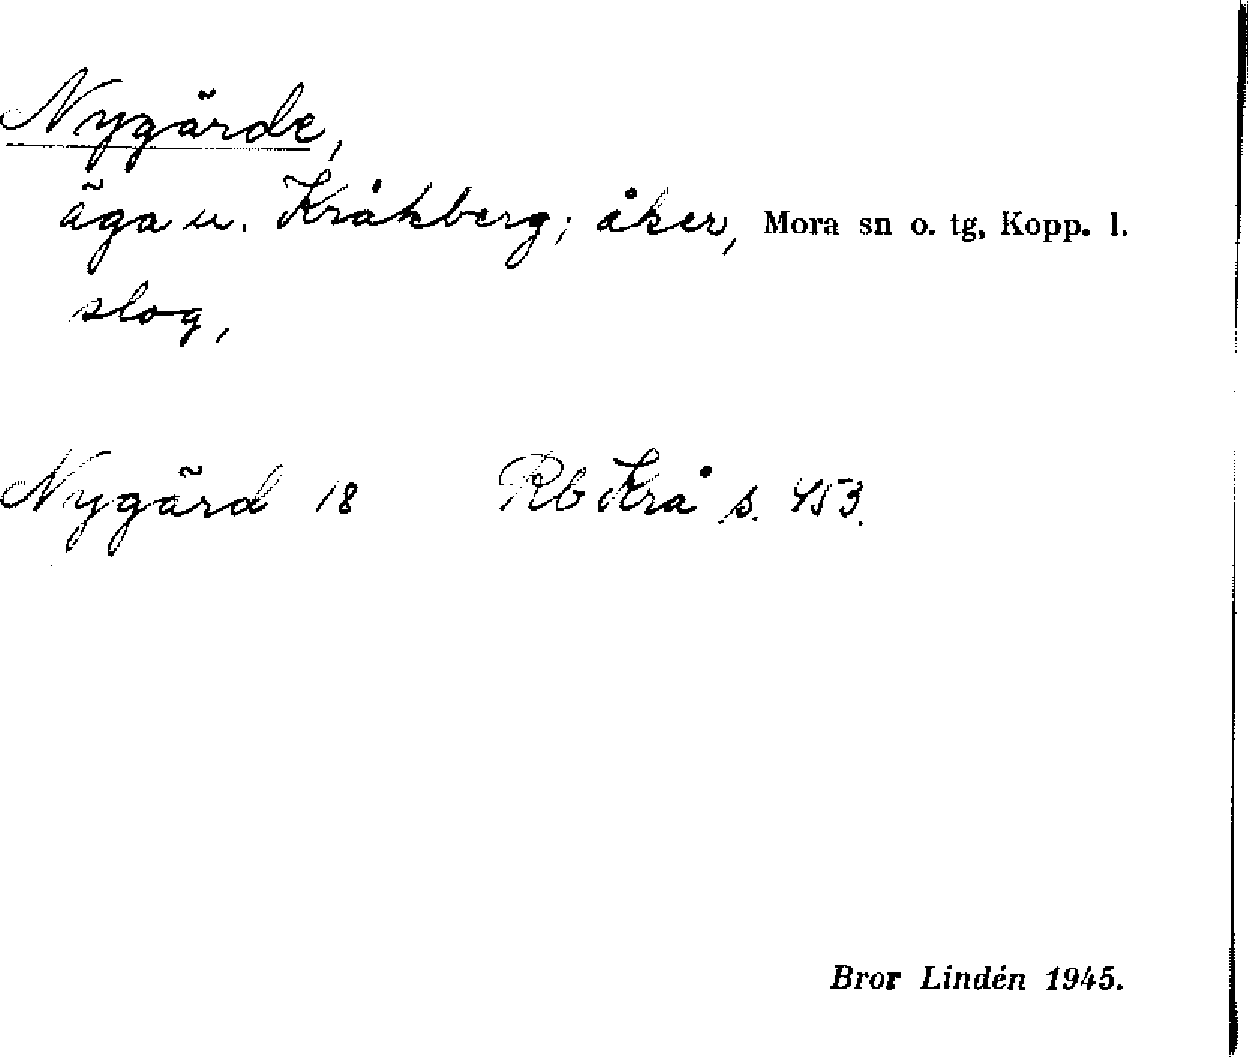 Nygärde,
äga u. Kråkberg; åker, Mora sn o. tg, Kopp. l.
slog,
Nygärd 18 Rb Krå s. 453.
Bror Lindén 1945.